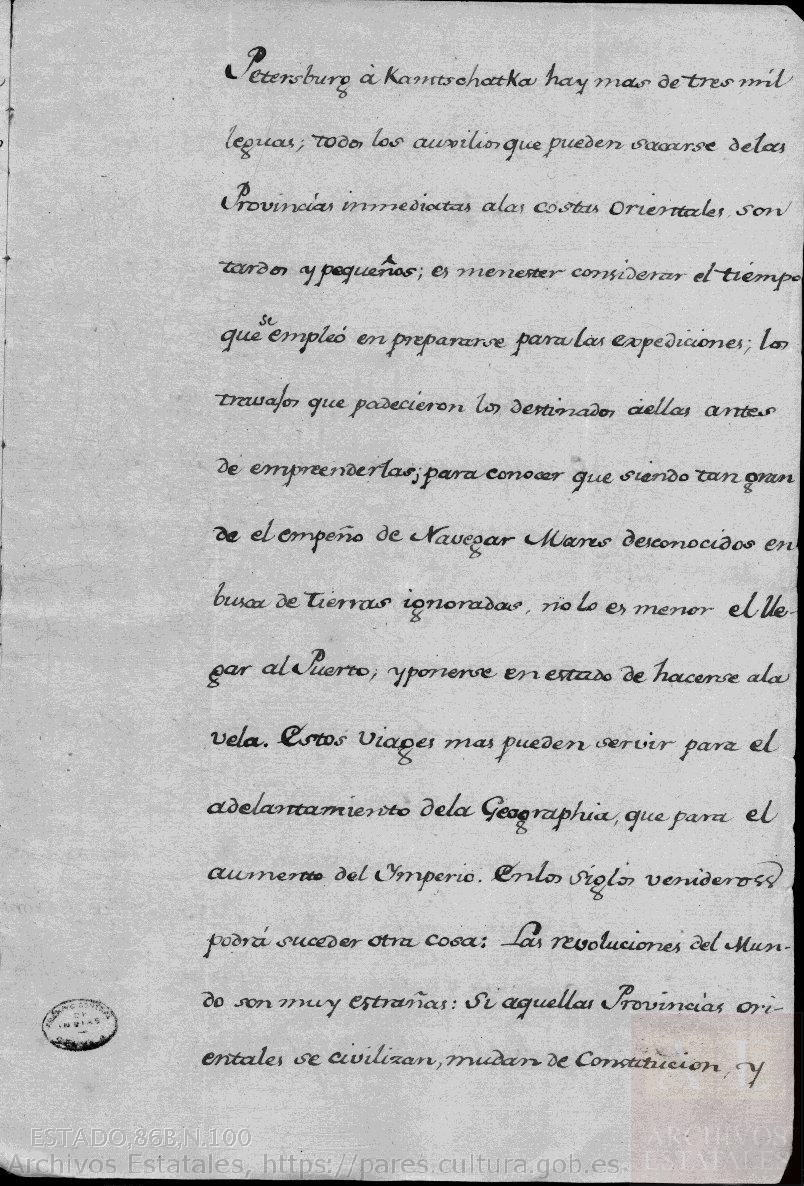 Petersburg à Kamtschatka hay mas de tres mil
leguas; todos los auxilios que pueden sacarse de las
Provincias inmediatas a las costas Orientales, son
tardos y pequeños; es menester considerar el tiempo
que se empleó en prepararse para las expediciones; los
travajos que padecieron los destinados aellas antes
de emprenderlas; para conocer que siendo tan gran
de el empeño de Navegar Mares desconocidos en
busca de tierras ignoradas, no lo es menor el lle-
gar al Puerto, y ponerse en estado de hacerse ala
vela. Estos Viages mas pueden servir para el
adelantamiento dela Geographia, que para el
aumento del Ymperio. En los siglos venideros
podrá suceder otra cosa: Las revoluciones del Mun-
do son muy estrañas: Si aquellas Provincias ori-
entales se civilizan, mudan de Constitucion, y
ESTADO,86B,N.100
Archivos Estatales, https://pares.cultura.gob.es
ARCHIVOS
ESTATALES